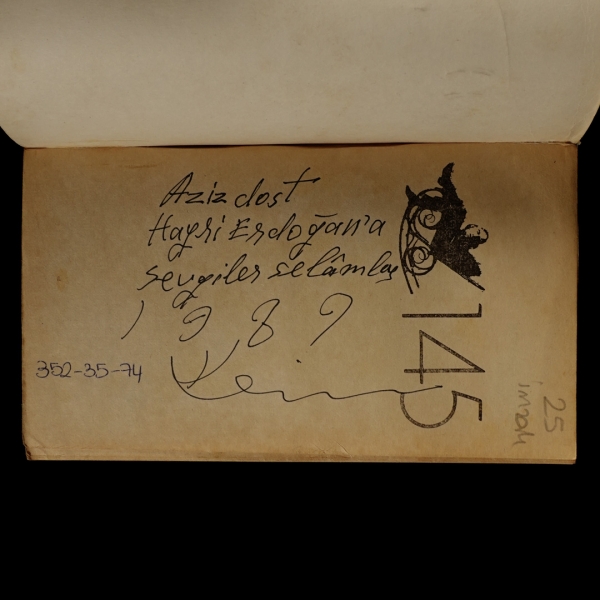 Aziz dost
Hayri Erdoğan'a
sevgiler selâmlar
1989
352-35-74
145
25
imzalı